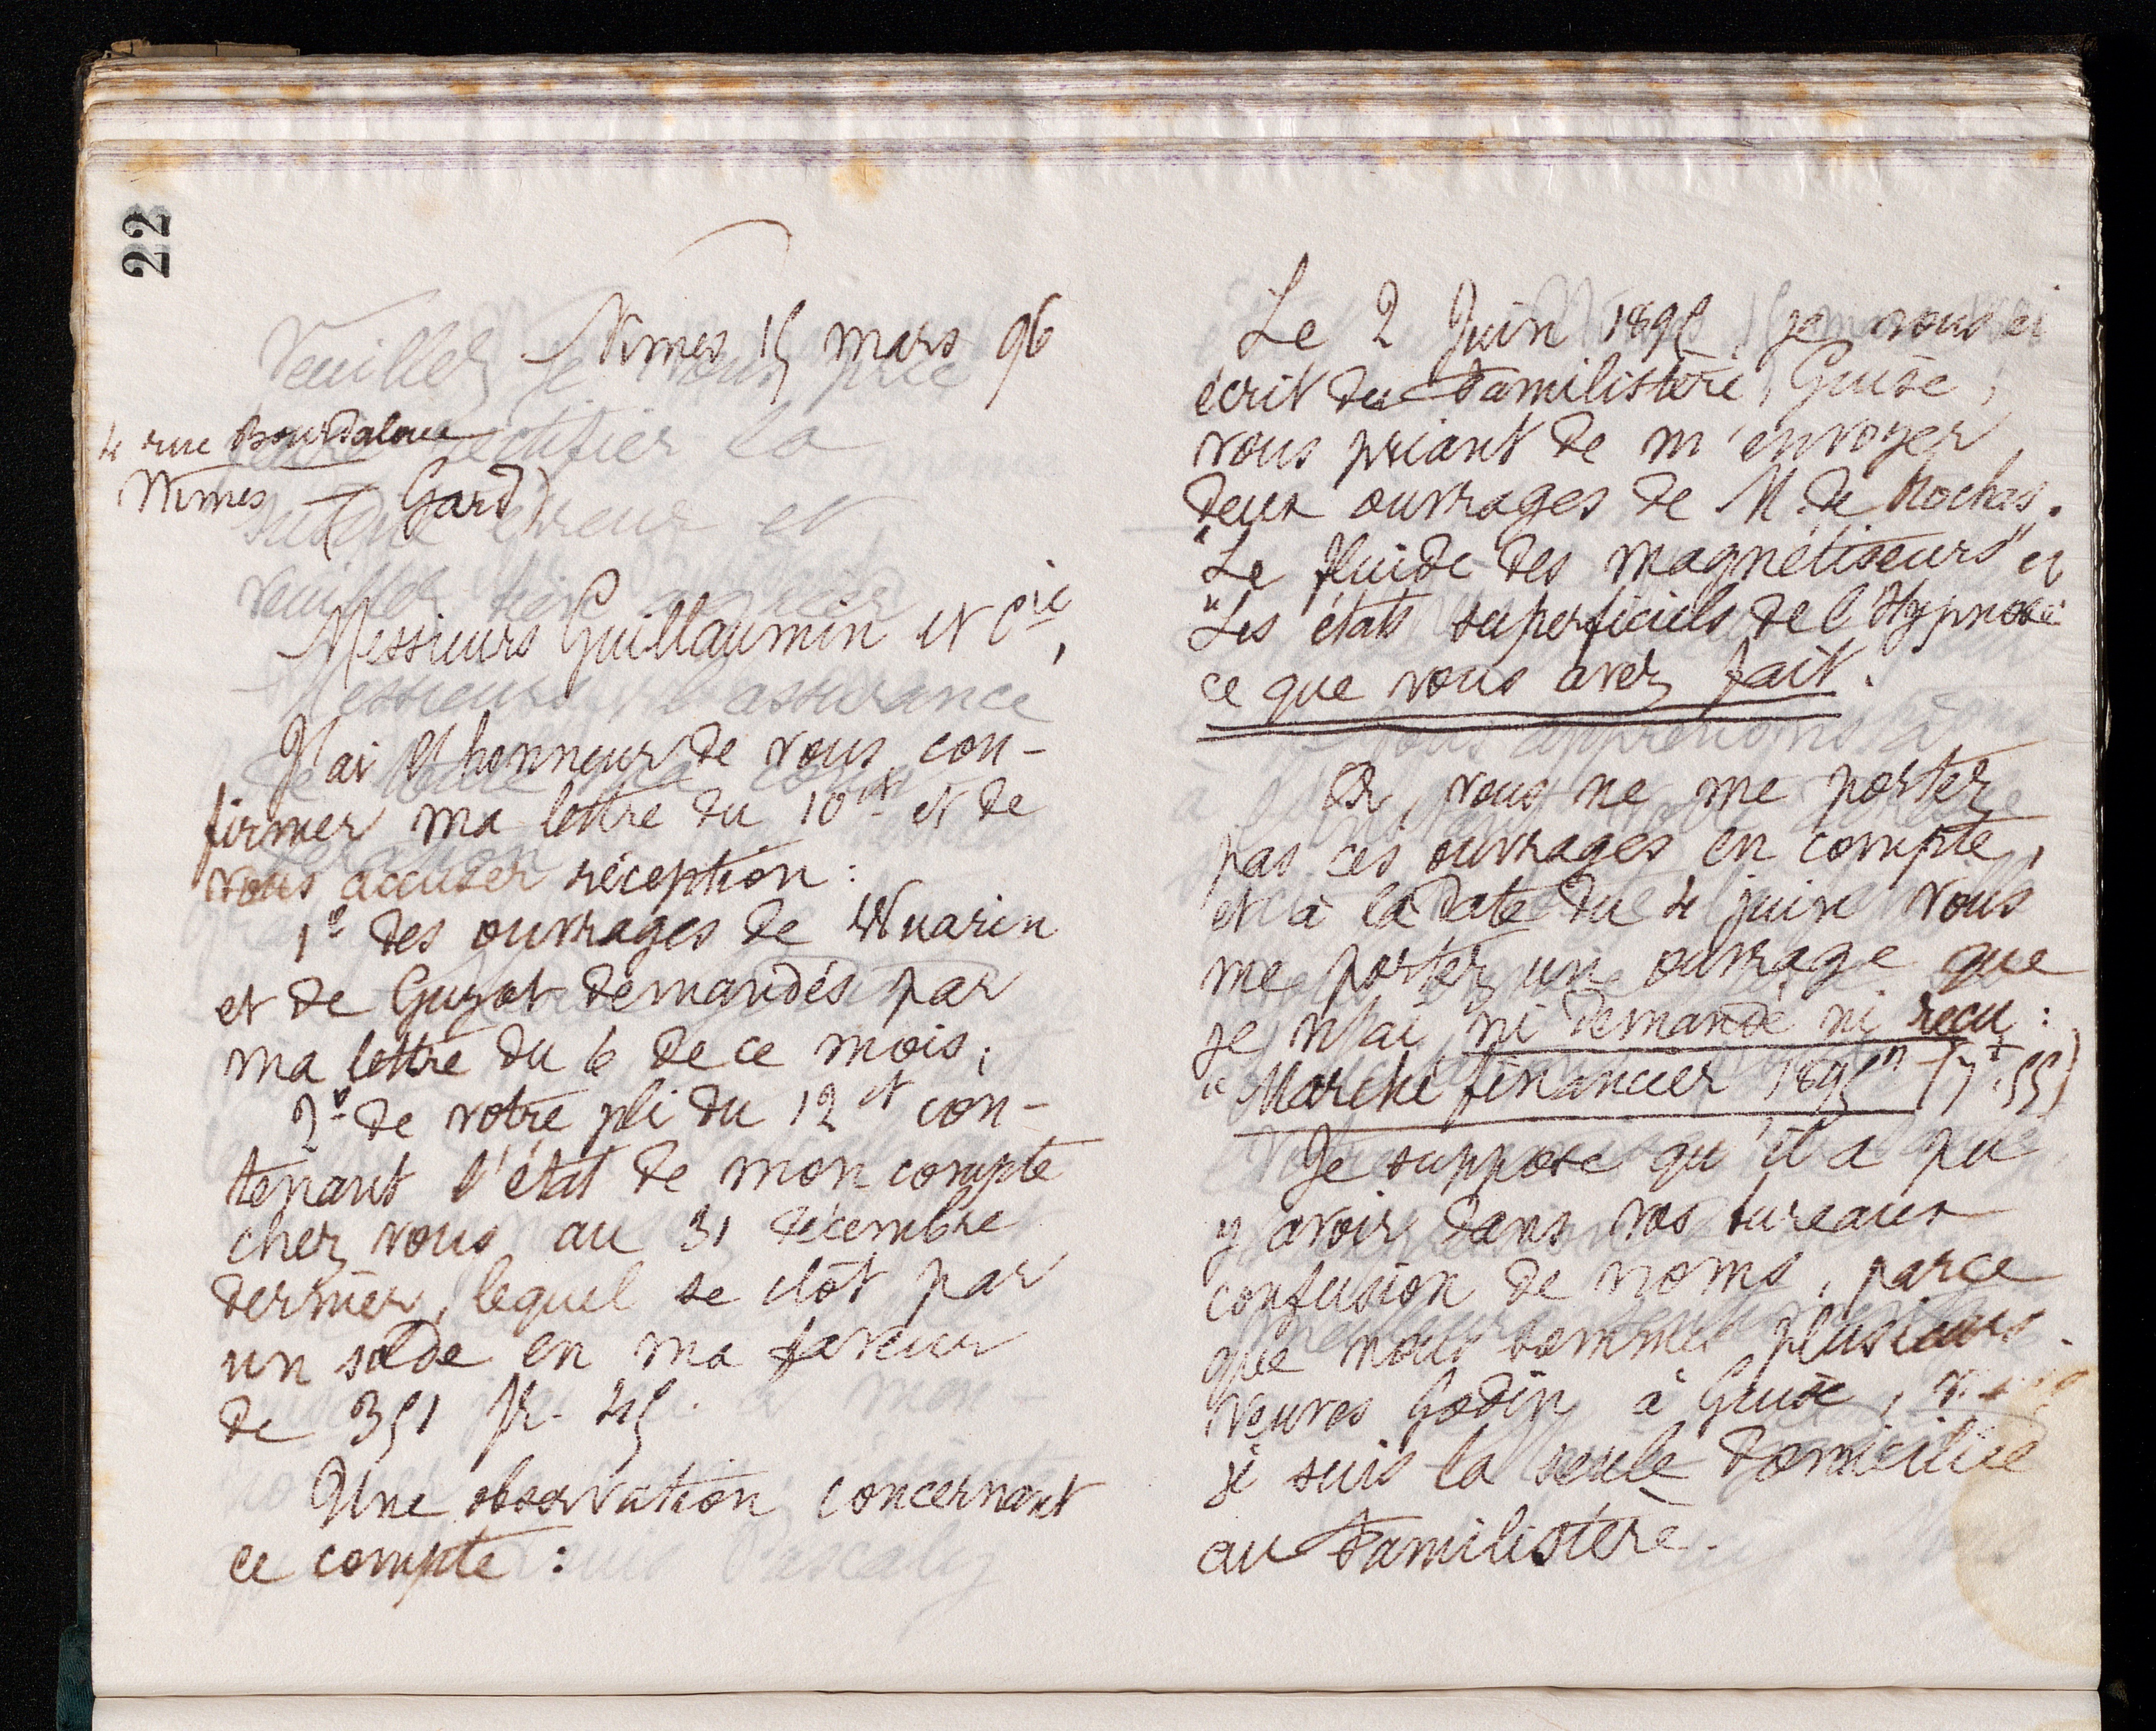 22
Nimes 15 mars 96
4 rue Bourdaloue
Nimes (Gard)
Messieurs Guillaumin et Cie,
J'ai l'honneur de vous con-
firmer ma lettre du 10 ct et de
vous accuser réception :
1º des ouvrages de Wuarin
et de Guyot demandés par
ma lettre du 6 de ce mois ;
2º de votre pli du 12 ct con-
tenant l'état de mon compte
chez vous au 31 décembre
dernier, lequel se clôt par
un solde en ma faveur
de 351 fr. 45.
Une observation concernant
ce compte :
Le 2 Juin 1895, je vous ai
écrit du Familistère, Guise,
vous priant de m'envoyer
deux ouvrages de M. de Rochas.
"Le fluide des magnétiseurs" et
"Les états superficiels de l'Hypnose"
ce que vous avez fait.
Or, vous ne me portez
pas ces ouvrages en compte,
et à la date du 4 juin vous
me portez un ouvrage que
je n'ai ni demandé ni reçu :
"Marché financier 1895" (7f.55)
Je suppose qu'il a pu
y avoir dans vos bureaux
confusion de noms, parce
que nous sommes plusieurs
veuves Godin à Guise,
je suis la seule domiciliée
au Familistère.